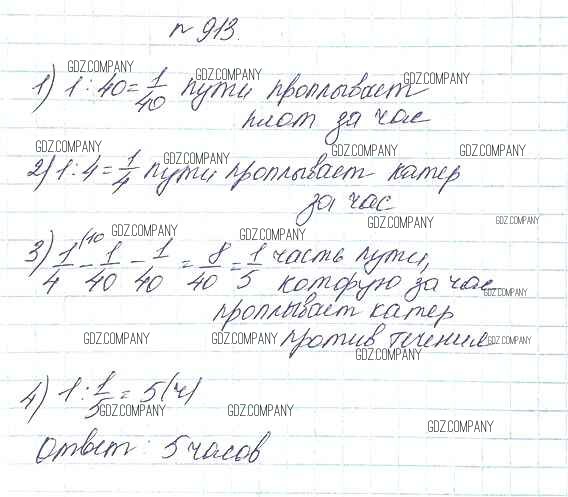 № 913.
GDZ.COMPANY GDZ.COMPANY GDZ.COMPANY
1) 1 : 40 = 1/40 пути проплывает
плот за час
GDZ.COMPANY GDZ.COMPANY GDZ.COMPANY GDZ.COMPANY
2) 1 : 4 = 1/4 пути проплывает катер
за час
GDZ.COMPANY GDZ.COMPANY GDZ.COMPANY GDZ.COMPANY
3) 1/4 (10 - 1/40 - 1/40 = 8/40 = 1/5 часть пути,
которую за час
GDZ.COMPANY
проплывает катер
GDZ.COMPANY GDZ.COMPANY GDZ.COMPANY
против течения
GDZ.COMPANY
4) 1 : 1/5 = 5 (ч)
GDZ.COMPANY GDZ.COMPANY GDZ.COMPANY
Ответ: 5 часов